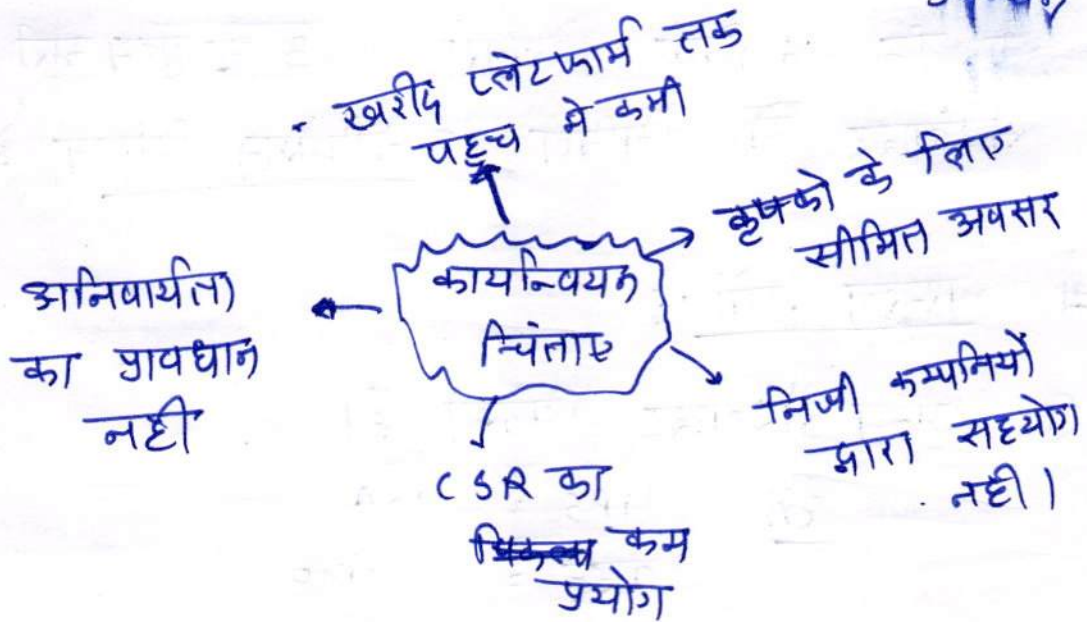 . खरीद प्लेटफार्म तक
पहुच मे कमी
कृषको के लिए
सीमित अवसर
कार्यान्वयन
चिंताए
अनिवार्यता
का प्रावधान
नही
निजी कम्पनियों
द्वारा सहयोग
नही।
CSR का
कम
प्रयोग